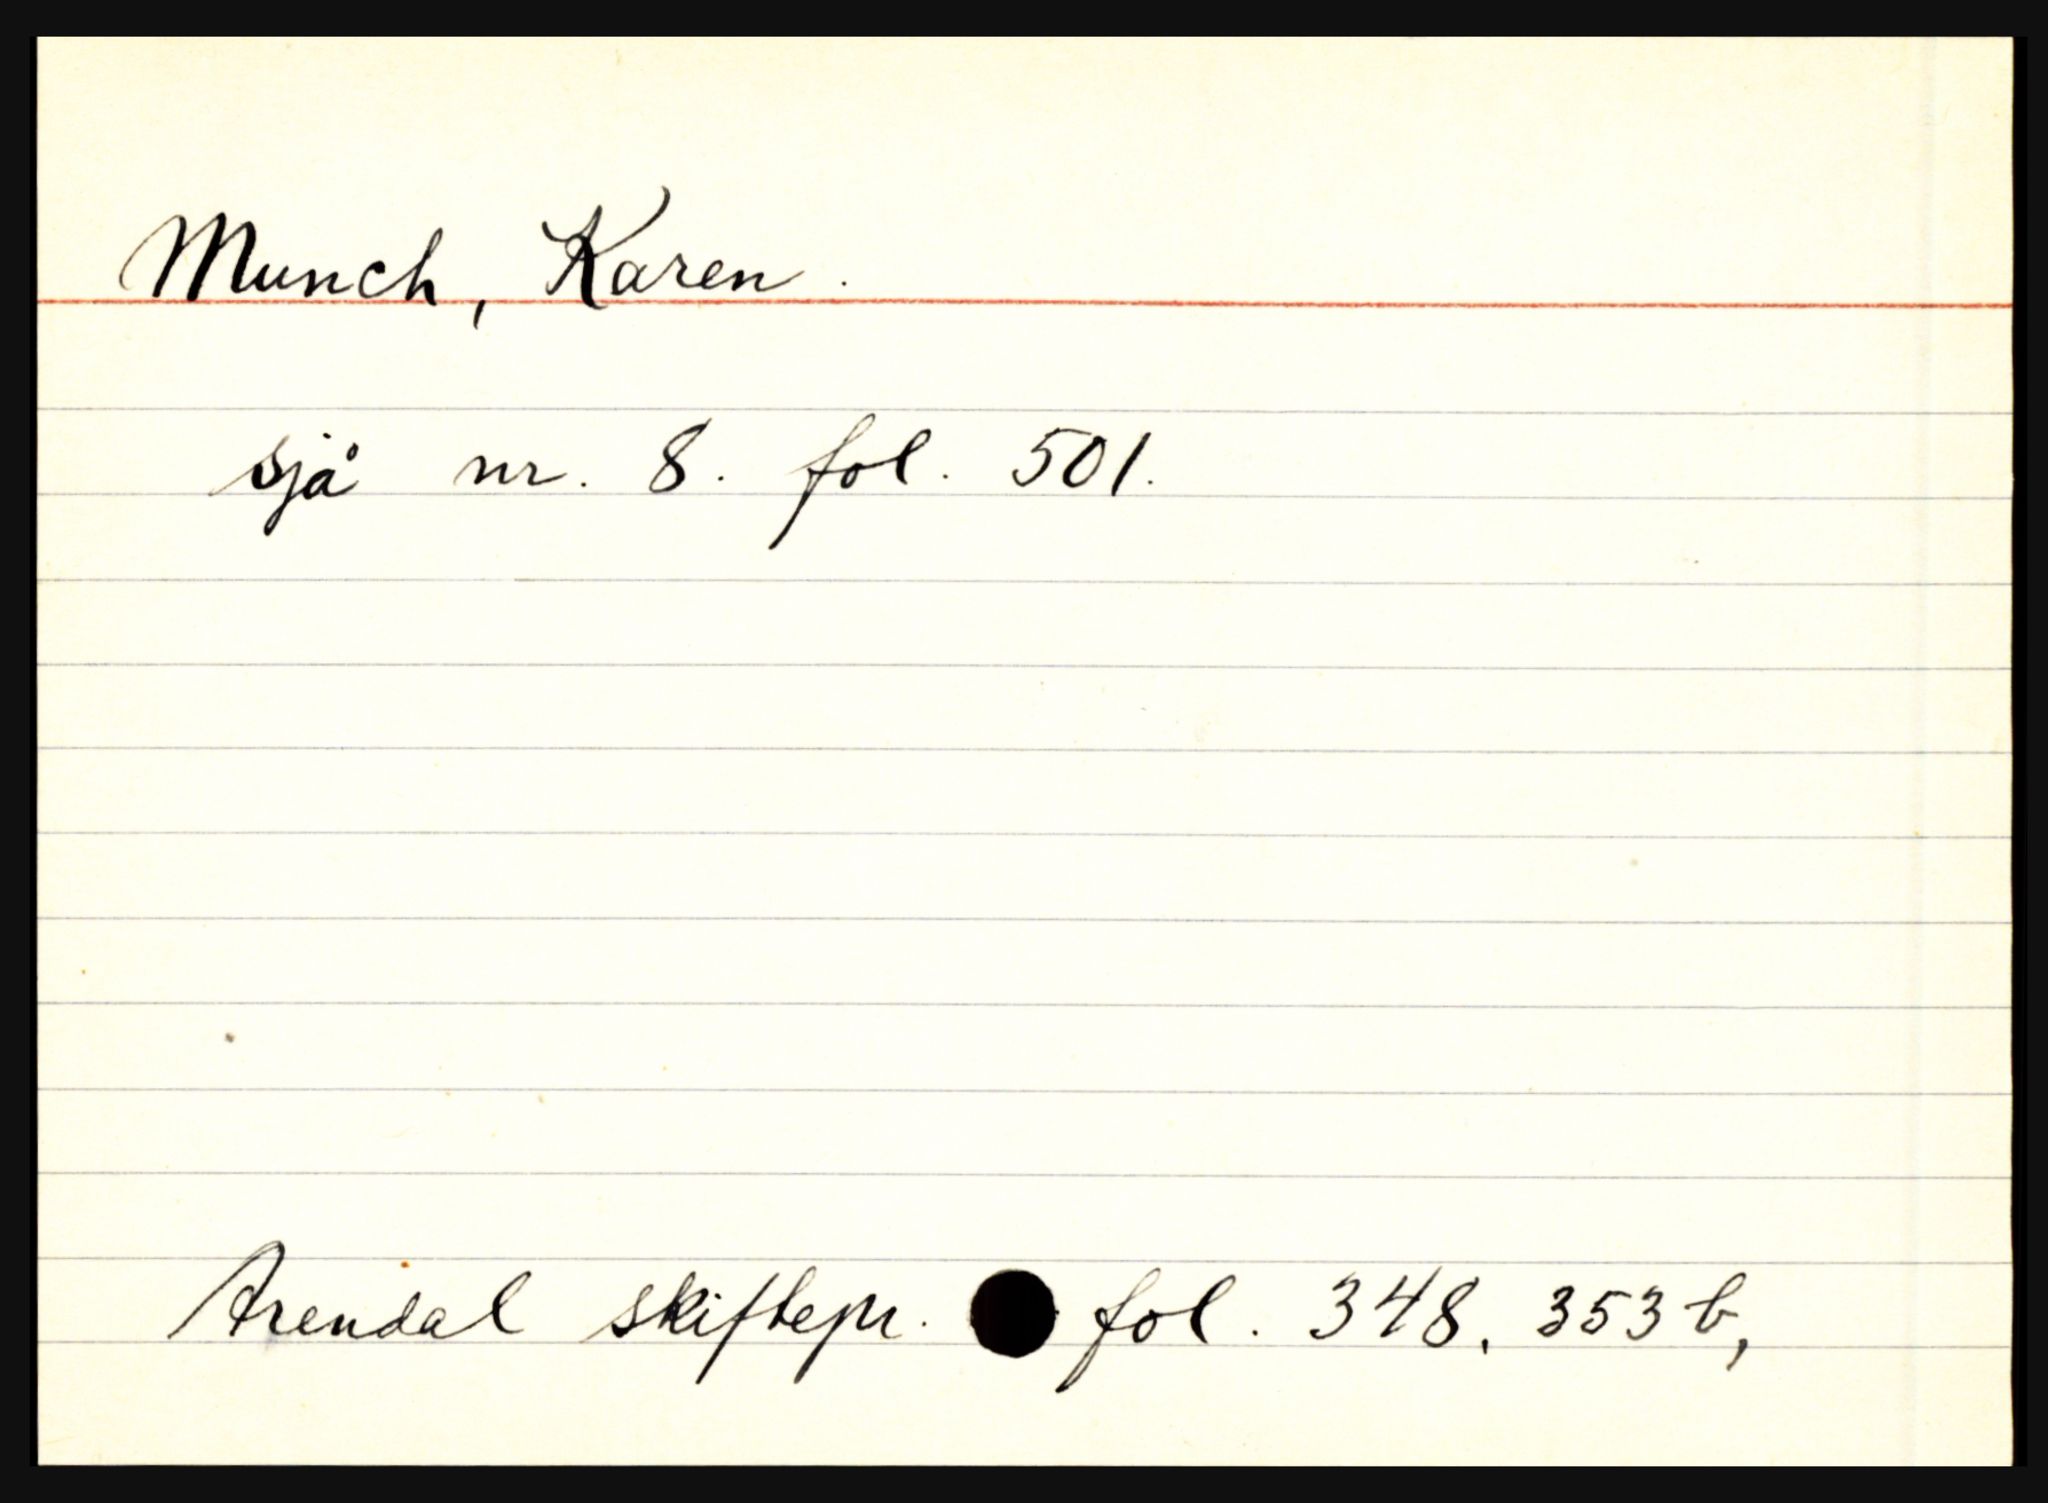 Munch, Karen.
sjå nr. 8. fol. 501.
Arendal skiftepr. fol. 348, 353 b,